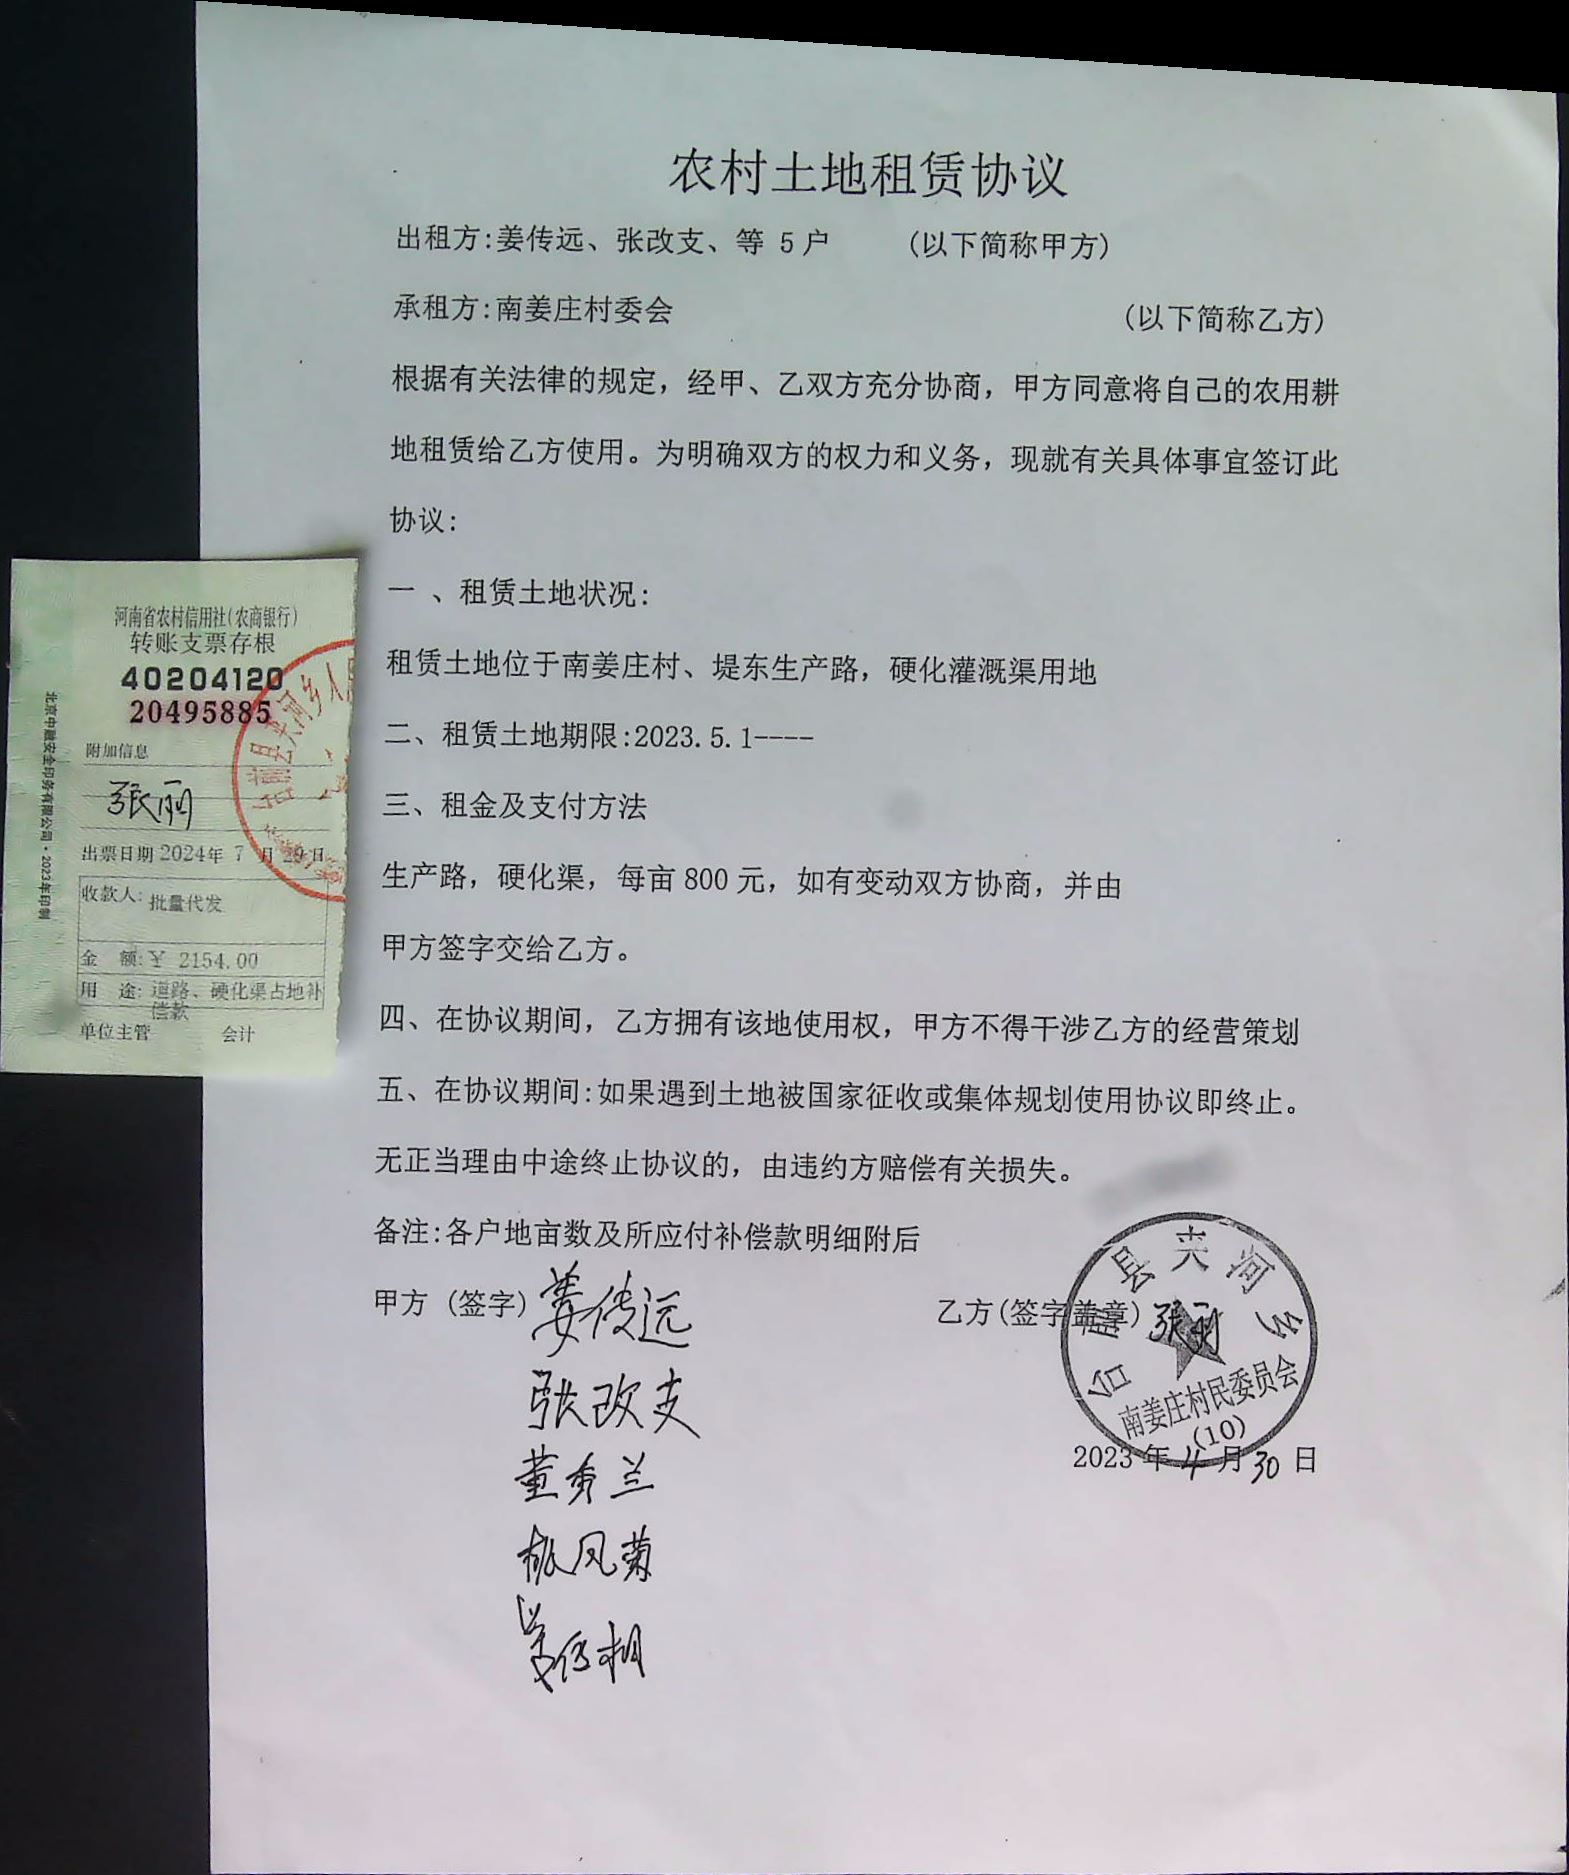 农村土地租赁协议
出租方:姜传远、张改支、等 5 户 (以下简称甲方)
承租方:南姜庄村委会 (以下简称乙方)
根据有关法律的规定，经甲、乙双方充分协商，甲方同意将自己的农用耕
地租赁给乙方使用。为明确双方的权力和义务，现就有关具体事宜签订此
协议:
一 、租赁土地状况:
租赁土地位于南姜庄村、堤东生产路，硬化灌溉渠用地
二、租赁土地期限:2023.5.1----
三、租金及支付方法
生产路，硬化渠，每亩 800 元，如有变动双方协商，并由
甲方签字交给乙方。
四、在协议期间，乙方拥有该地使用权，甲方不得干涉乙方的经营策划
五、在协议期间:如果遇到土地被国家征收或集体规划使用协议即终止。
无正当理由中途终止协议的，由违约方赔偿有关损失。
备注:各户地亩数及所应付补偿款明细附后
甲方 (签字) 姜传远
张改支
董秀兰
凤菊
姜传相
乙方(签字盖章) 张丽
台前县夹河乡
南姜庄村民委员会
(10)
2023 年 4 月 30 日
河南省农村信用社(农商银行)
转账支票存根
40204120
20495885
附加信息
张丽
出票日期 2024年 7 月 29 日
收款人: 批量代发
金 额:￥ 2154.00
用 途: 道路、硬化渠占地补
偿款
单位主管 会计
北京中融安全印务有限公司·2023年印制
台前县夹河乡人民